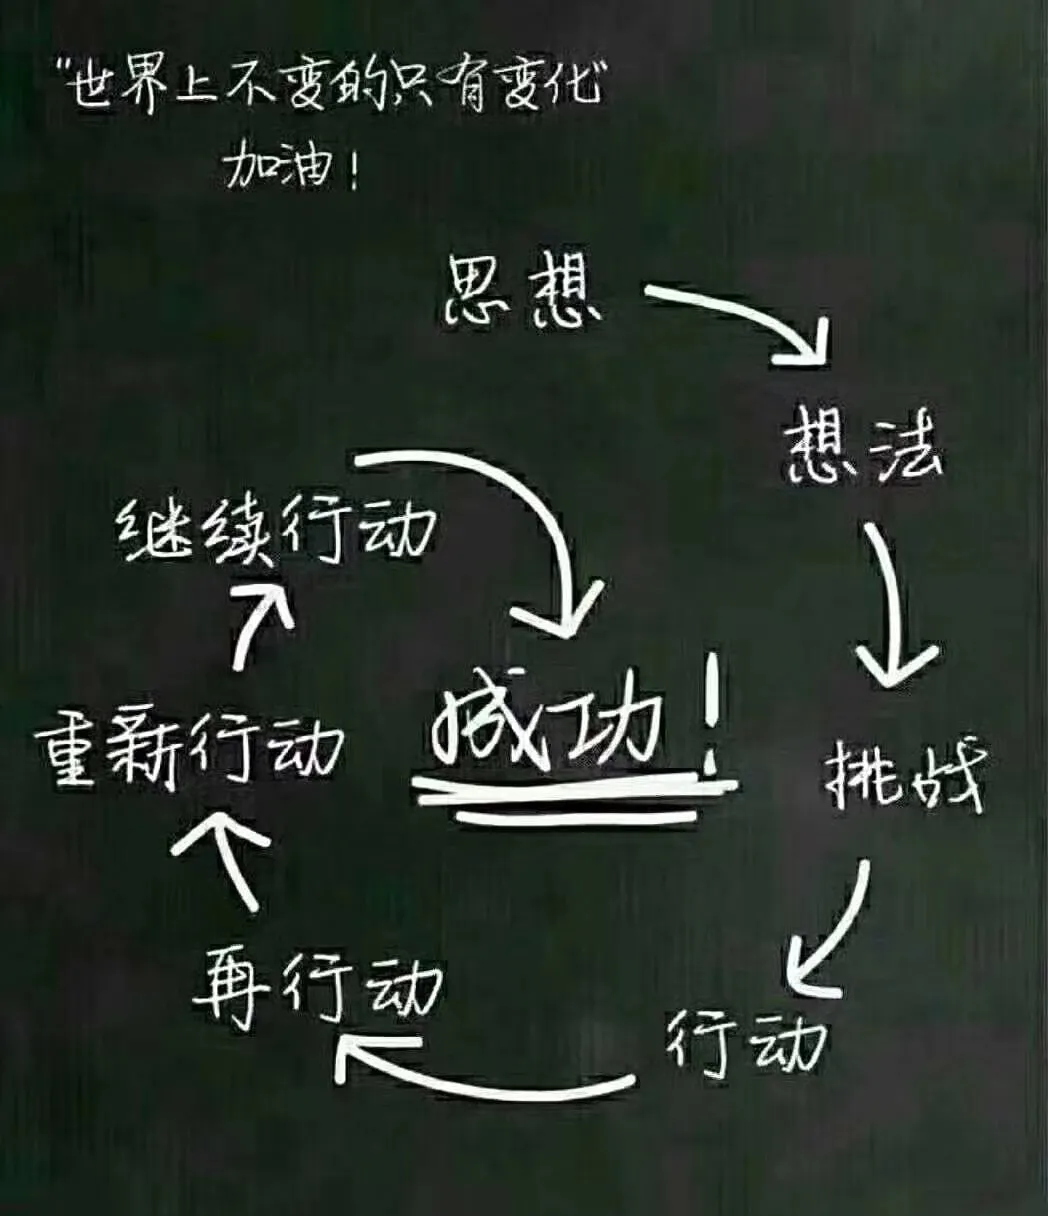 "世界上不变的只有变化"
加油！
思想
想法
挑战
行动
再行动
重新行动
继续行动
成功！